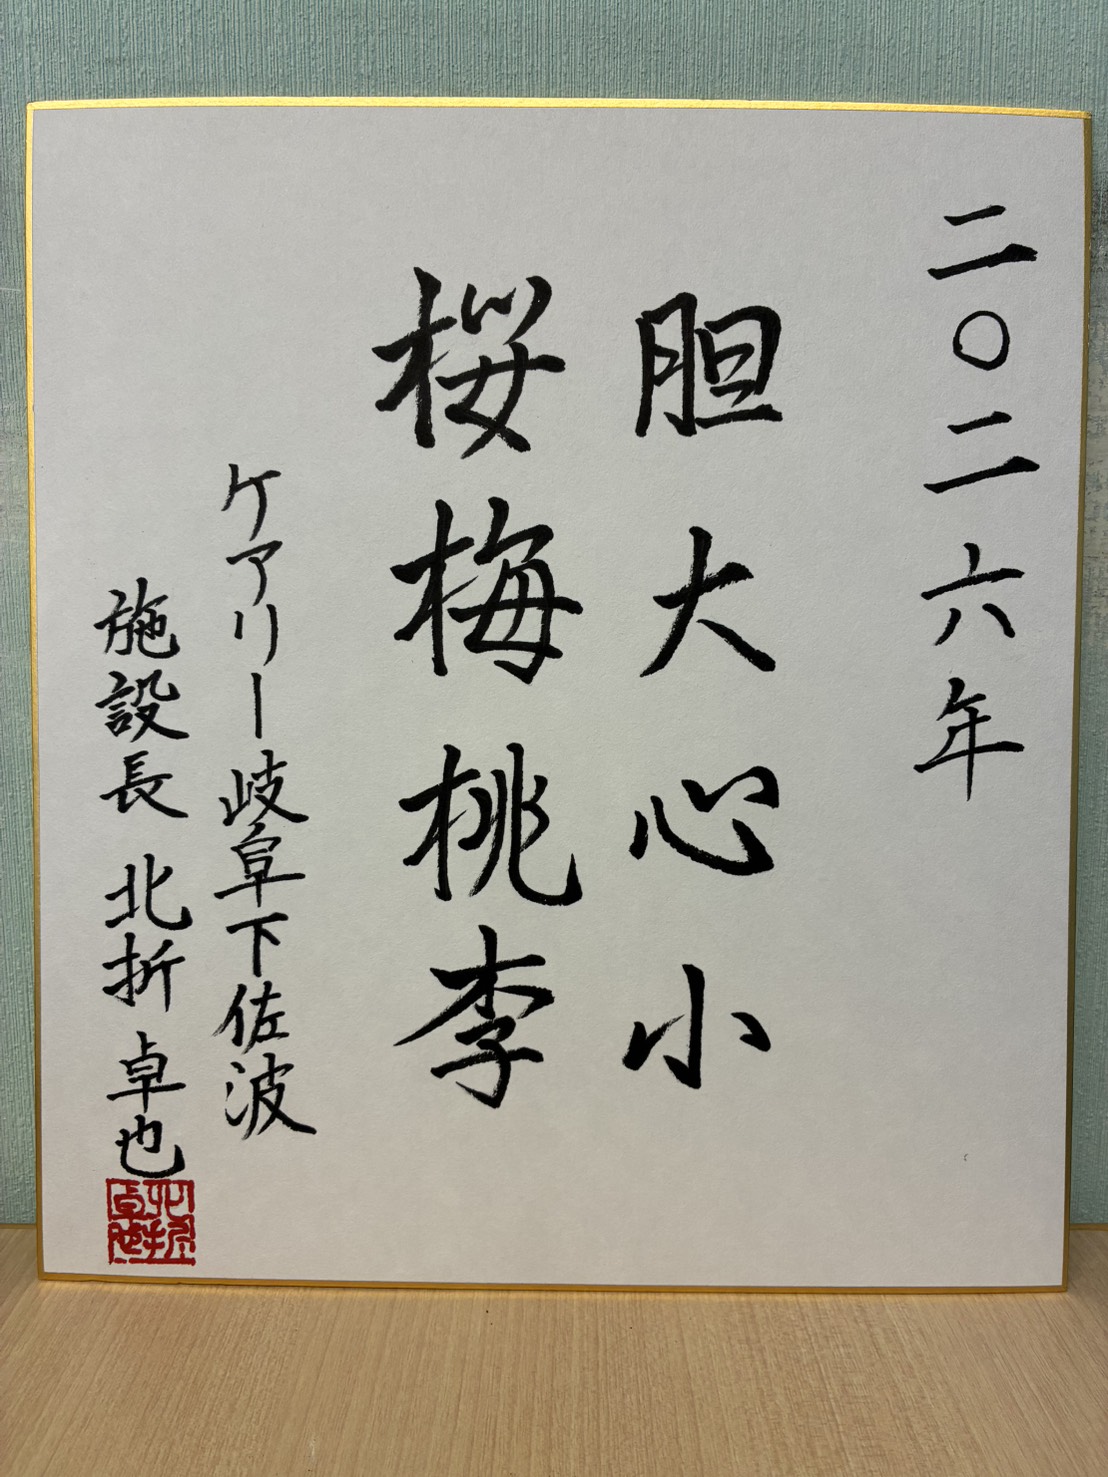 二〇二六年
胆大心小
桜梅桃李
ケアリー岐阜下佐波
施設長 北折 卓也
北折
卓也